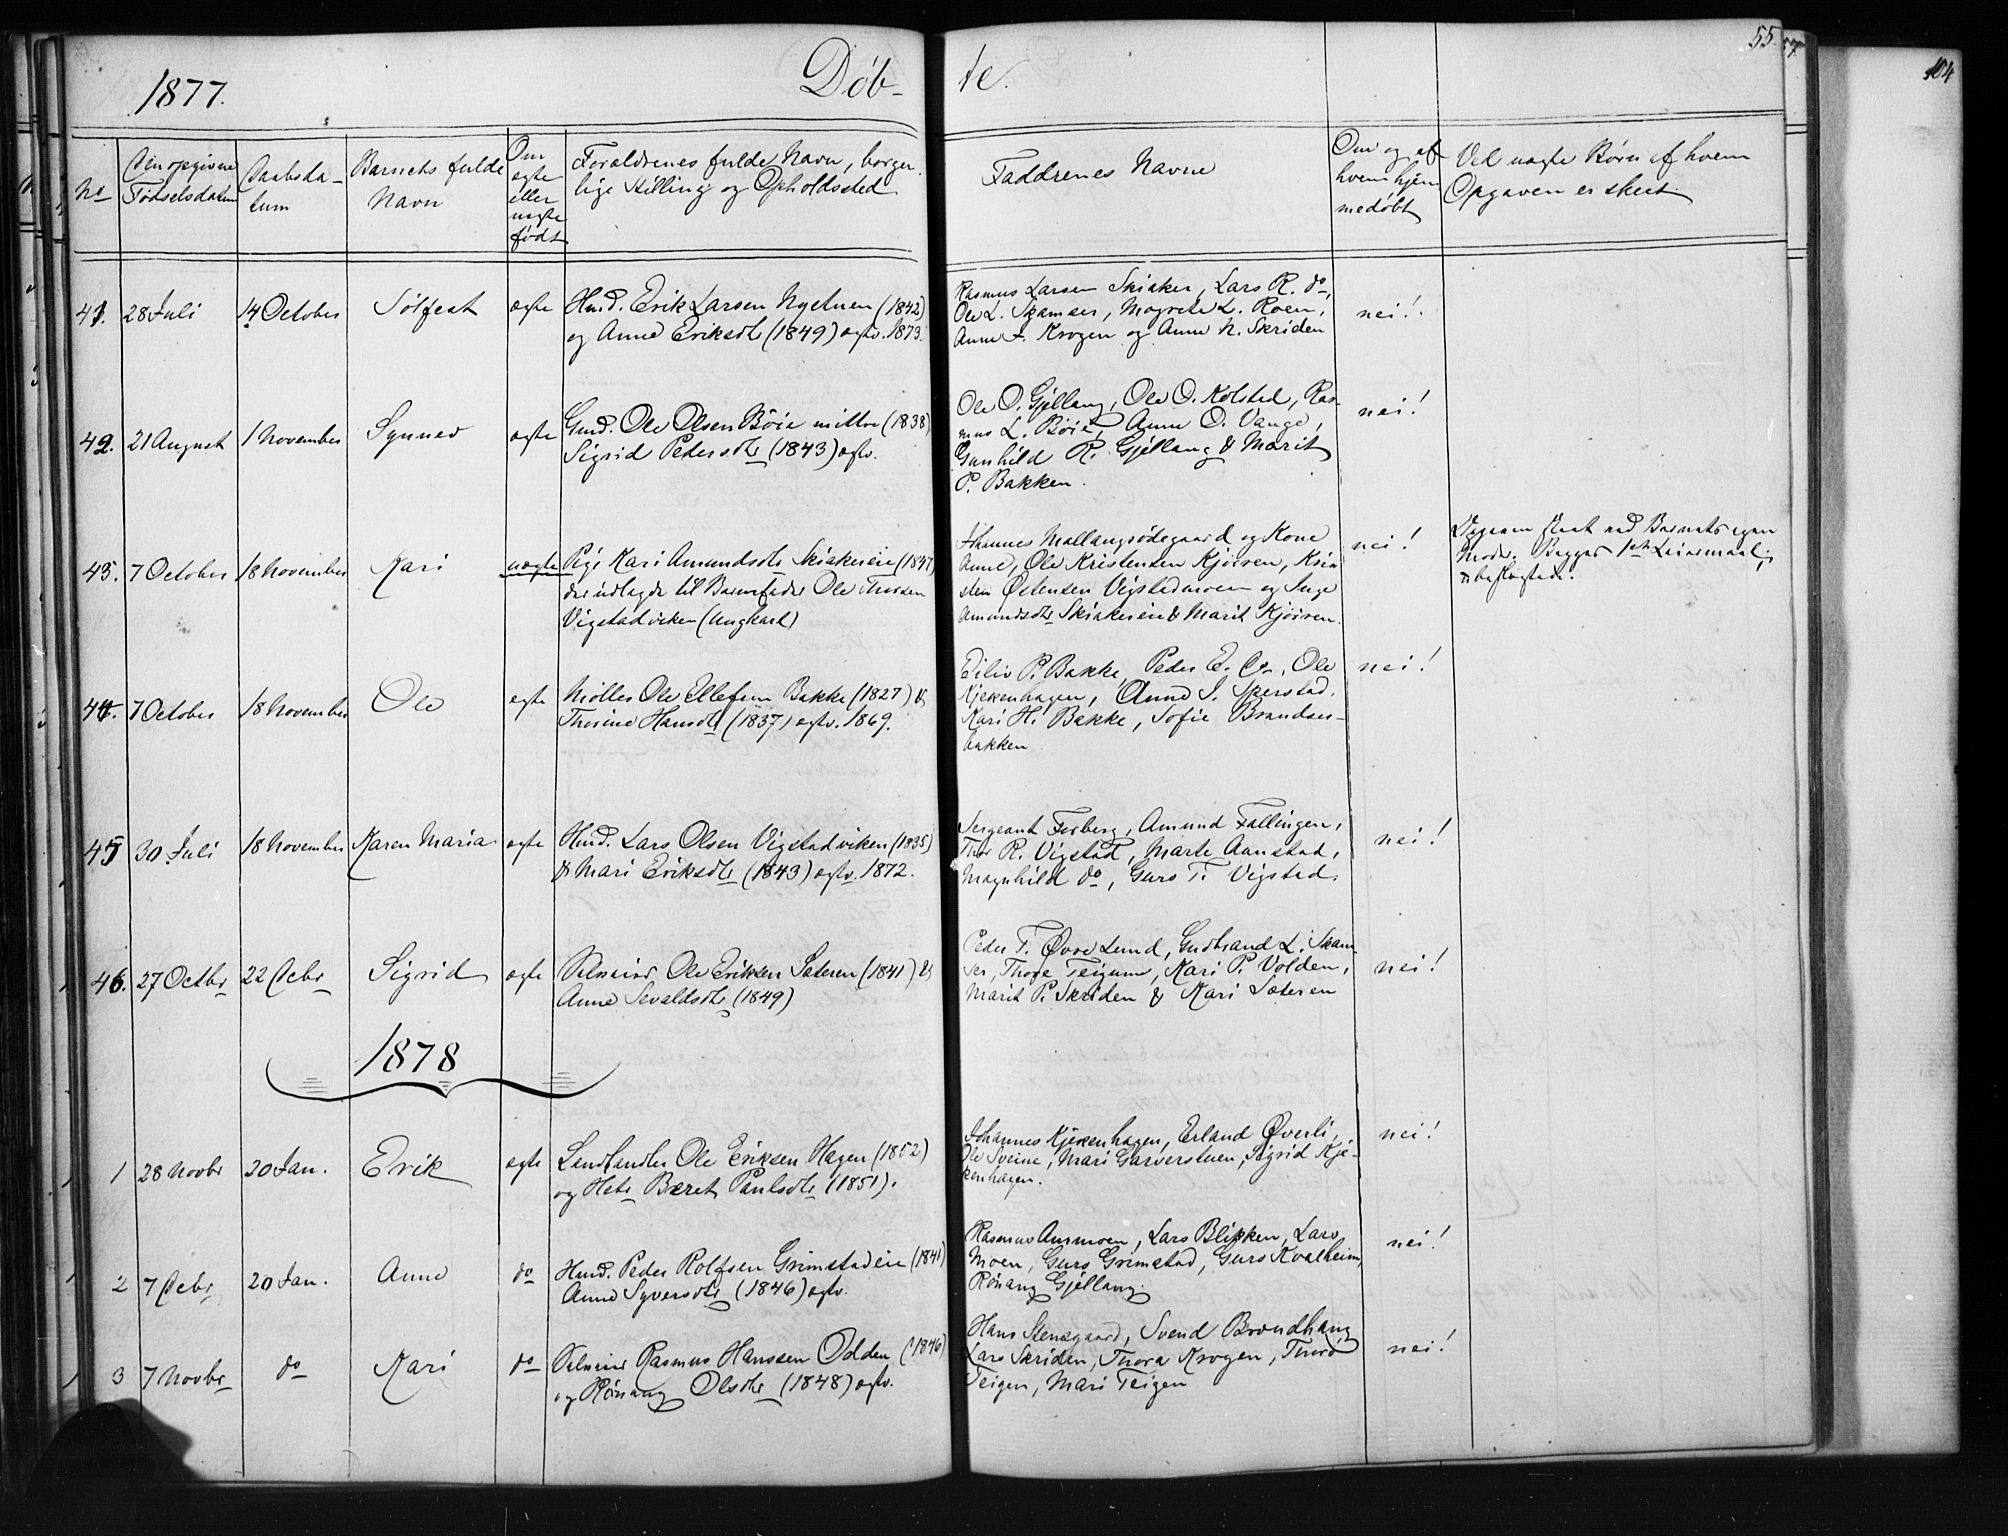 1877.
Døb-
te.
55.
104
No
Den opgivne
Fødselsdatum
Daabsda-
tum
Barnets fulde
Navn
Om
ægte
eller
uægte
født
Forældrenes fulde Navn, borger
lige Stilling og Opholdssted
Faddrenes Navne
Om og af
hvem hjem
medøbt
Ved uægte Børn af hvem
Opgaven er skeet
41. 28 Juli
14 October
Sølfest
ægte
Husmd. Erik Larsen Nystuen (1842)
og Anne Eriksdtr (1849) egtv. 1873.
Rasmus Larsen Skiaker, Lars R. do,
Ole L. Skamser, Magrete L. Roen,
Anne J. Krogen og Anne N. Skriden
nei!
42. 21 August
1 November
Synnev
ægte
Gmd. Ole Olsen Böie mittre (1838)
Sigrid Pedersdtr (1843) egtv.
Ole O. Gjellang, Ole O. Kolstad, Ras-
mus L. Böie, Anne O. Vange,
Gunhild R. Gjellang & Marit
P. Bakken.
nei!
43. 7 October
18 November
Kari
uægte
Pige Kari Amundsdtr Skiakereie (1847)
der udlagde til Barnefader Ole Thorsen
Vigstadviken (Ungkarl)
Johannes Mallangsødegaard og Kone
Anne, Ole Kristensen Kjörren, Kris
sten Østensen Vigstadmoen og Inge
Amundsdtr Skiakereie & Marit Kjörren.
nei!
Opgaven skeet ved Barnets egen
Moder. Begges 1ste Leiermaal;
44. 7 October
18 November
Ole
ægte
Møller Ole Ellefsen Bakke (1827) &
Thorine Hansdtr (1837) egtv. 1869.
Eiliv P. Bakke, Peder E. do, Ole
Kjekenhagen, Anne S. Skerstad,
Kari H. Bakke, Sofie Brandser-
bakken
nei!
45 30 Juli
18 November
Karen Maria
ægte
Husmd. Lars Olsen Vigstadviken (1835)
& Mari Eriksdtr (1843) egtv. 1872.
Sergeant Forberg, Amund Fallingen,
Thor R. Vigstad, Marte Aanstad,
Magnhild do, Guro T. Vigstad.
nei!
46. 27 Octbr
22 Debr
Sigrid
ægte
Selveier Ole Eriksen Sæteren (1841) &
Anne Sevaldsdtr (1849)
Peder T. Øvre Lund, Gudbrand L. Skam-
ser, Thore Teigum, Kari P. Volden,
Marit P. Skriden & Kari Sæteren
nei!
1878
1 28 Novbr
20 Jan.
Erik
ægte
Landhandler Ole Eriksen Hagen (1852)
og Hstr Beret Paulsdtr (1851).
Johannes Kjekenhagen, Erland Øverli,
Ole Sveine, Mari Garverstuen, Sigrid Kje-
kenhagen.
nei!
2 7 Debr
20 Jan.
Anne
do
Husmd. Peder Rolfsen Grimstadeie (1841)
Anne Syversdtr (1846) egtv.
Rasmus Aunmoen, Lars Blikken, Lars
Moen, Guro Grimstad, Guro Kvalheim,
Rönaug Gjellang
nei!
3 7 Novbr
do
Kari
do
Selveier Rasmus Hanssen Odden (1846)
og Rönaug Olsdtr (1848) egtv.
Hans Stensgaard, Svend Brændhaug
Lars Skriden, Thora Krogen, Thore
Teigen, Mari Teigen
nei!